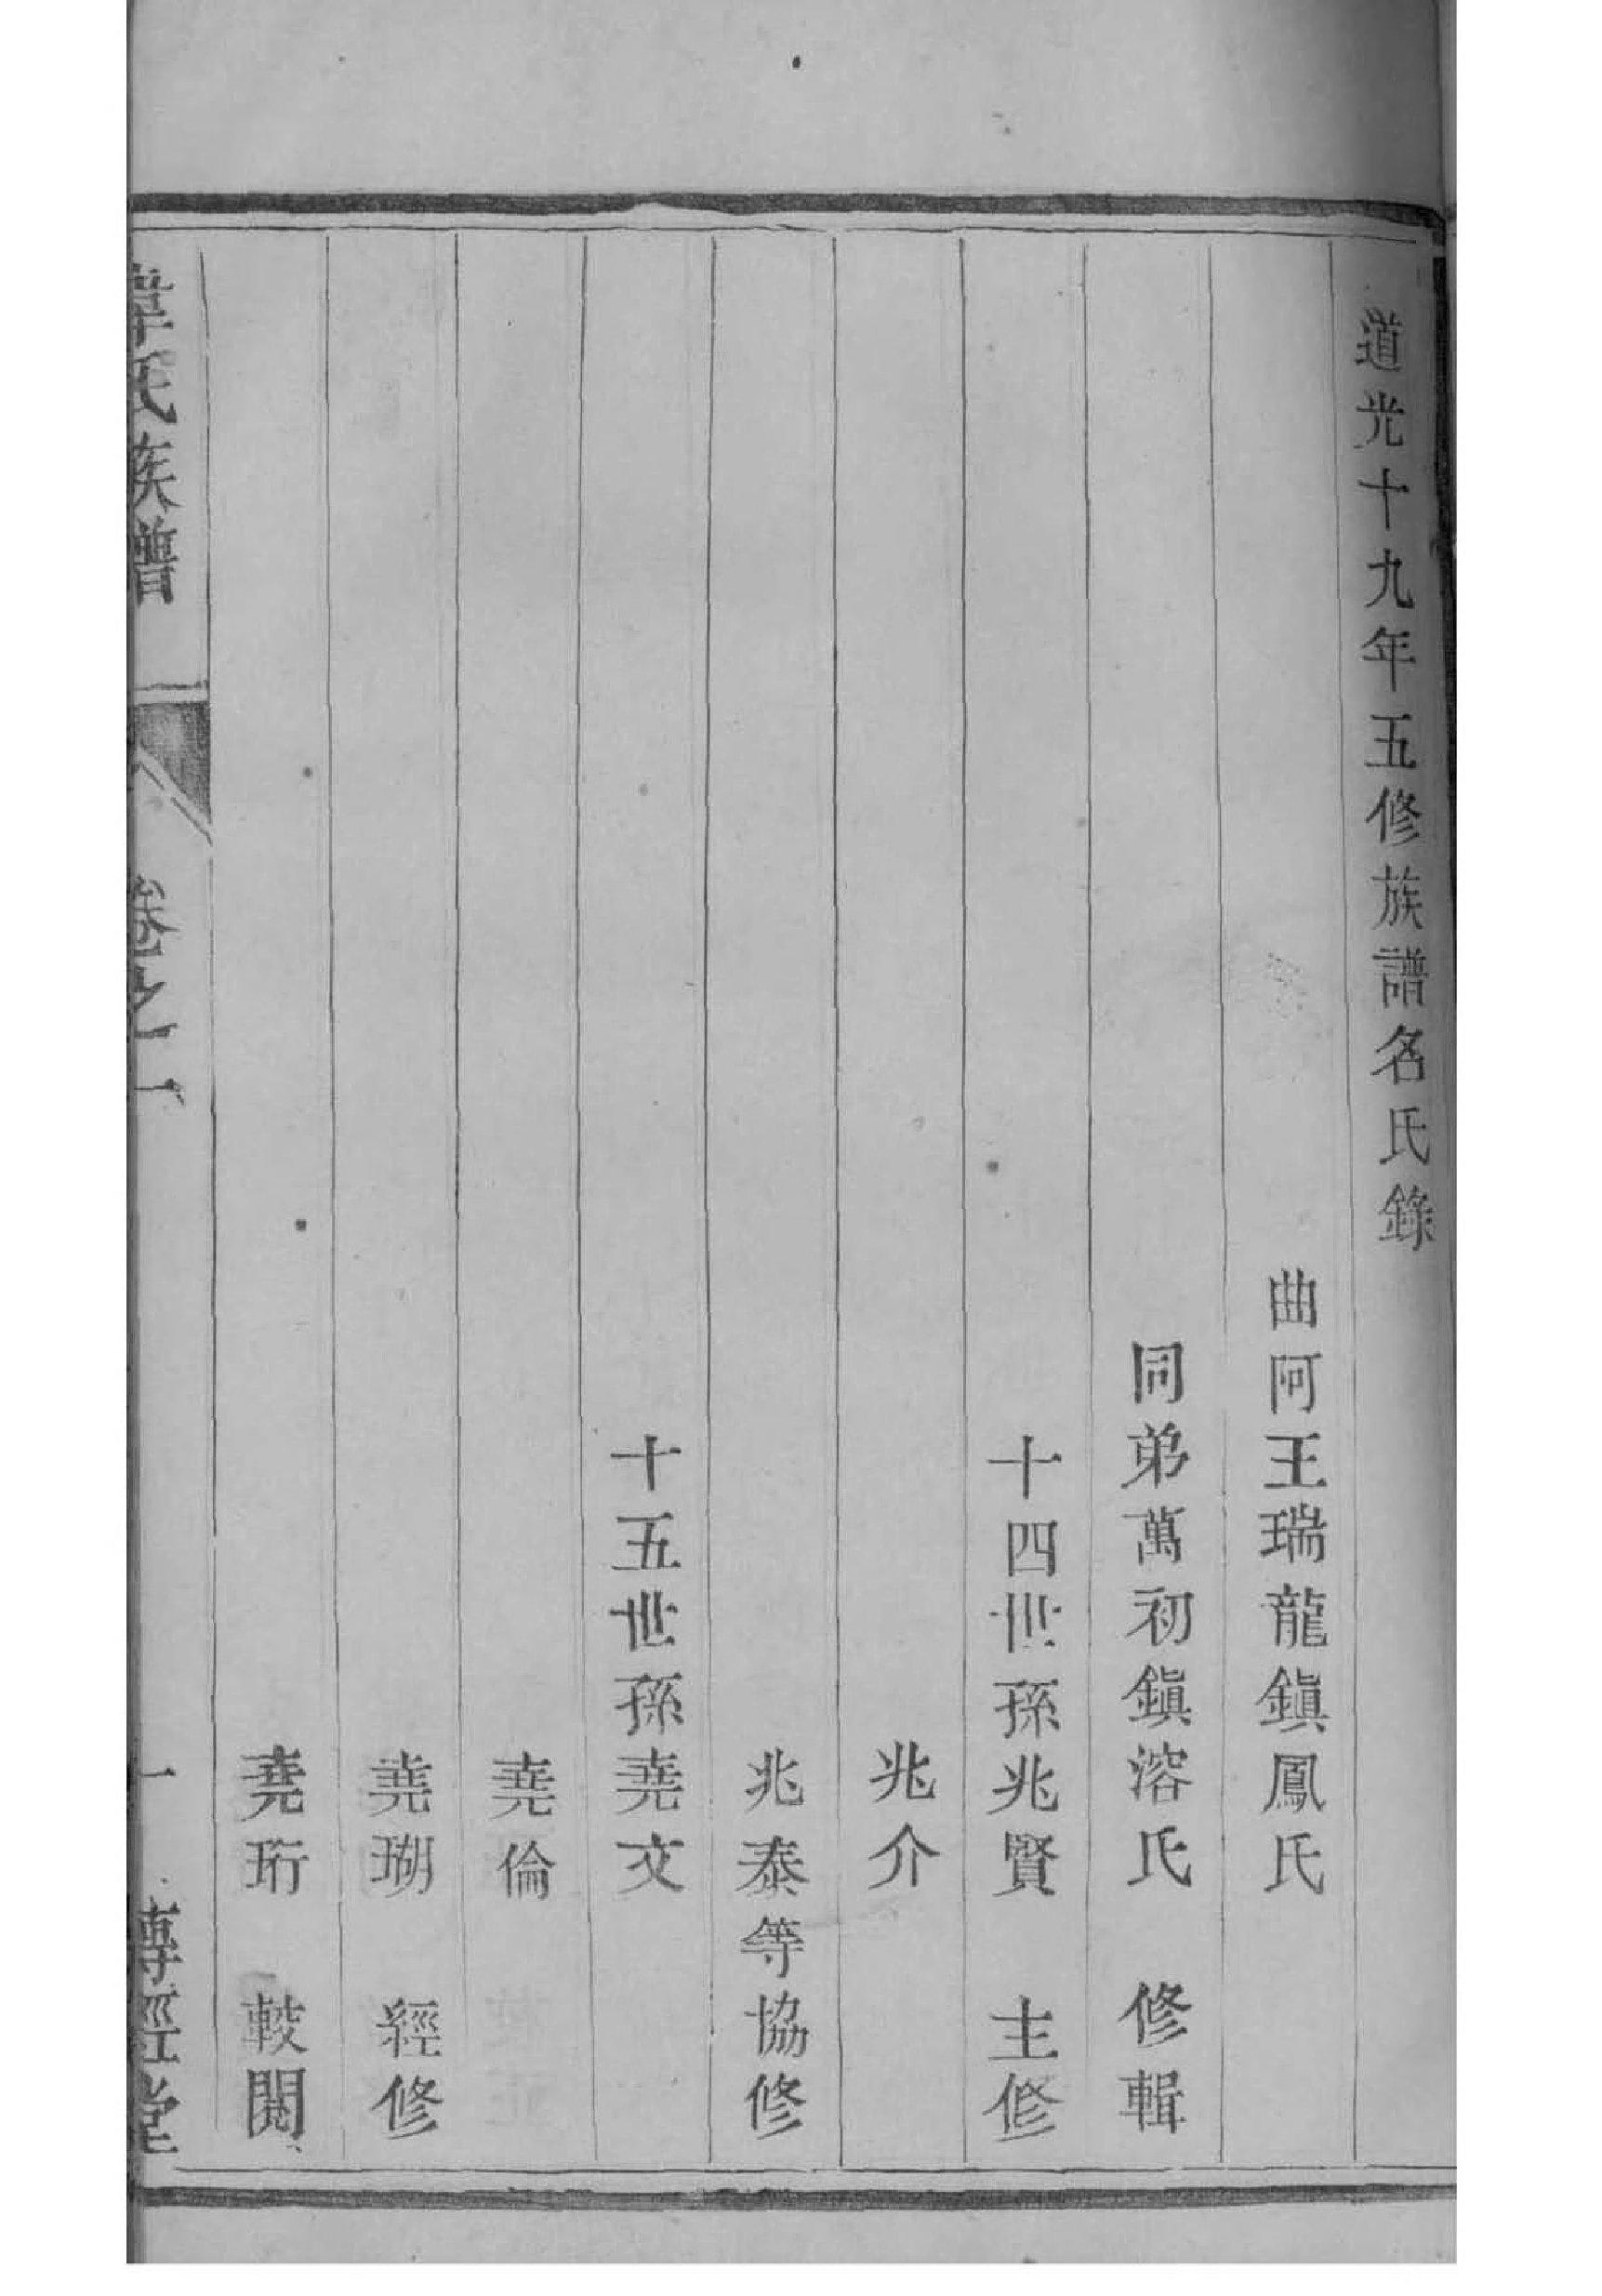 道光十九年五修族譜名氏錄
曲阿王瑞龍鎭鳳氏
同弟萬初鎭溶氏　修輯
十四世孫兆賢　主修
兆介
兆泰等協修
十五世孫堯文
堯倫
堯瑚　經修
堯珩　較閱
韋氏族譜　卷之一　一　傳經堂